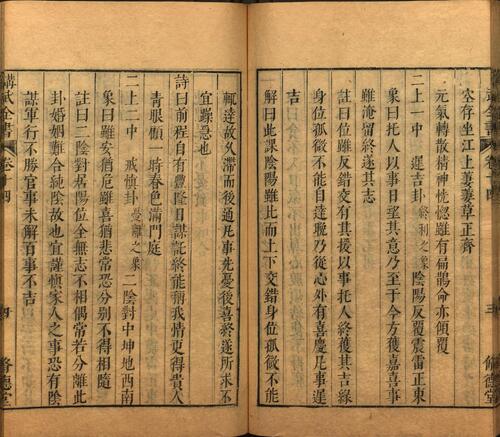 空存坐江上萋萋草正齊
元氣轉散精神恍惚雖有扁鵲命亦傾覆
二上一中 遲吉卦 終利之象 陰陽反覆震雷正東
象曰托人以事日至其意乃至于今方獲嘉喜事
雖淹留終遂其志
註曰雖反錯交有其援以事托人終獲其吉緣
身位孤微不能自達聰乃從心外有喜慶凡事遲
吉
解曰此課陰陽雖比而上下交錯身位孤微不能
輒達故久滯而後通凡事先憂後喜終遂所求不
宜躁急也
詩曰前程自有豐隆日謀託終能稱我情更得貴人
青眼顧一時春色滿門庭
二上二中 戒慎卦 憂離之象 二陰對中坤地西南
象曰雖安猶厄雖喜猶悲常恐分別不得相隨
註曰二陰對居陽位全無志不相偶常若分離此
卦婚姻難合純陰故也宜謹慎家人之事恐有陰
謀軍行不勝官事未解百事不吉
講武全書 卷十四 四 脩德堂